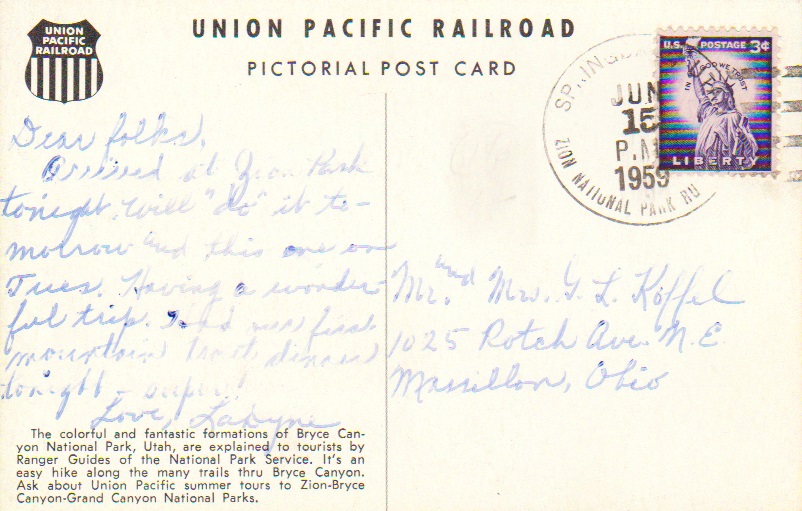 UNION
PACIFIC
RAILROAD
UNION PACIFIC RAILROAD
PICTORIAL POST CARD
U.S. POSTAGE 3¢
IN GOD WE TRUST
LIBERTY
JUN
15
P.M
1959
ZION NATIONAL PARK RU
Dear folks,
Arrived at Zion Park
tonight. Will "do" it to-
morrow and this one on
Tues. Having a wonder-
ful trip. Had our first
mountain trout dinner
tonight - super!
Love, LaDyne
Mr. and Mrs. G. L. Koffel
1025 Rotch Ave. N.E.
Massillon, Ohio
The colorful and fantastic formations of Bryce Can-
yon National Park, Utah, are explained to tourists by
Ranger Guides of the National Park Service. It's an
easy hike along the many trails thru Bryce Canyon.
Ask about Union Pacific summer tours to Zion-Bryce
Canyon-Grand Canyon National Parks.